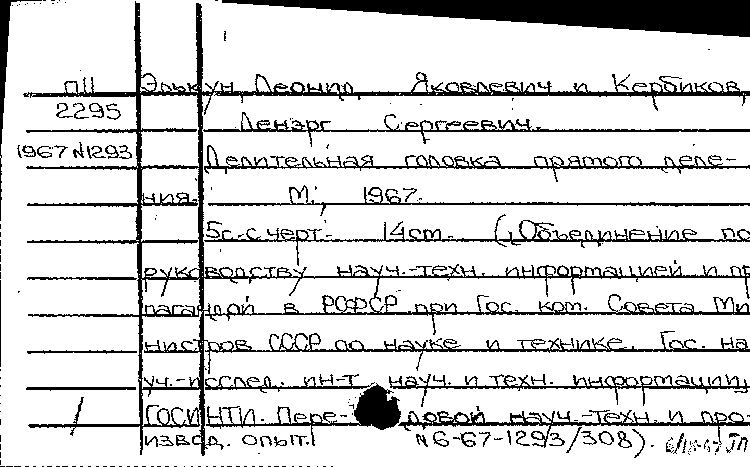 П11 Элькун, Леонид Яковлевич и Кербиков,
2295 Ленэрг Сергеевич.
1967 N1293 Делительная головка прямого деле-
ния. М., 1967.
5с. с черт. 14см. („Объединение по
руководству науч.-техн. информацией и пр
пагандой в РСФСР при Гос. ком. Совета Ми
нистров СССР по науке и технике. Гос. на
уч.-исслед. ин-т науч. и техн. информации
ГОСИНТИ. Пере- довой науч.-техн. и про-
извод. опыт. N6-67-1293/308).